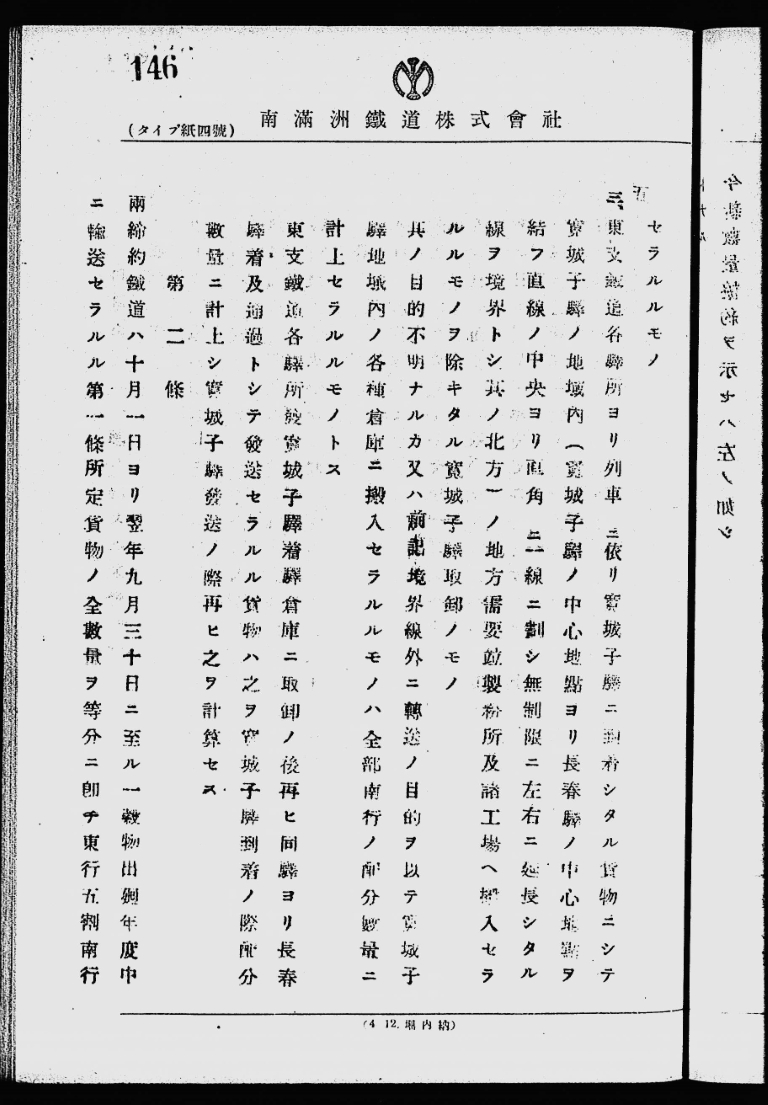 146
南滿洲鐵道株式會社
(タイプ紙四號)
セラルルモノ
三、東支鐵道各驛所ヨリ列車ニ依リ寬城子驛ニ到着シタル貨物ニシテ
寬城子驛ノ地域內(寬城子驛ノ中心地點ヨリ長春驛ノ中心地點ヲ
結フ直線ノ中央ヨリ直角ニ一線ニ劃シ無制限ニ左右ニ延長シタル
線ヲ境界トシ其ノ北方)ノ地方需要竝製粉所及諸工場ヘ搬入セラ
ルルモノヲ除キタル寬城子驛取卸ノモノ
其ノ目的不明ナルカ又ハ前記境界線外ニ轉送ノ目的ヲ以テ寬城子
驛地域內ノ各種倉庫ニ搬入セラルルモノハ全部南行ノ配分數量ニ
計上セラルルモノトス
東支鐵道各驛所發寬城子驛着驛倉庫ニ取卸ノ後再ヒ同驛ヨリ長春
驛着及通過トシテ發送セラルル貨物ハ之ヲ寬城子驛到着ノ際配分
數量ニ計上シ寬城子驛發送ノ際再ヒ之ヲ計算セス
第二條
兩締約鐵道ハ十月一日ヨリ翌年九月三十日ニ至ル一穀物出廻年度中
ニ輸送セラルル第一條所定貨物ノ全數量ヲ等分ニ卽チ東行五割南行
(4. 12. 堀內納)